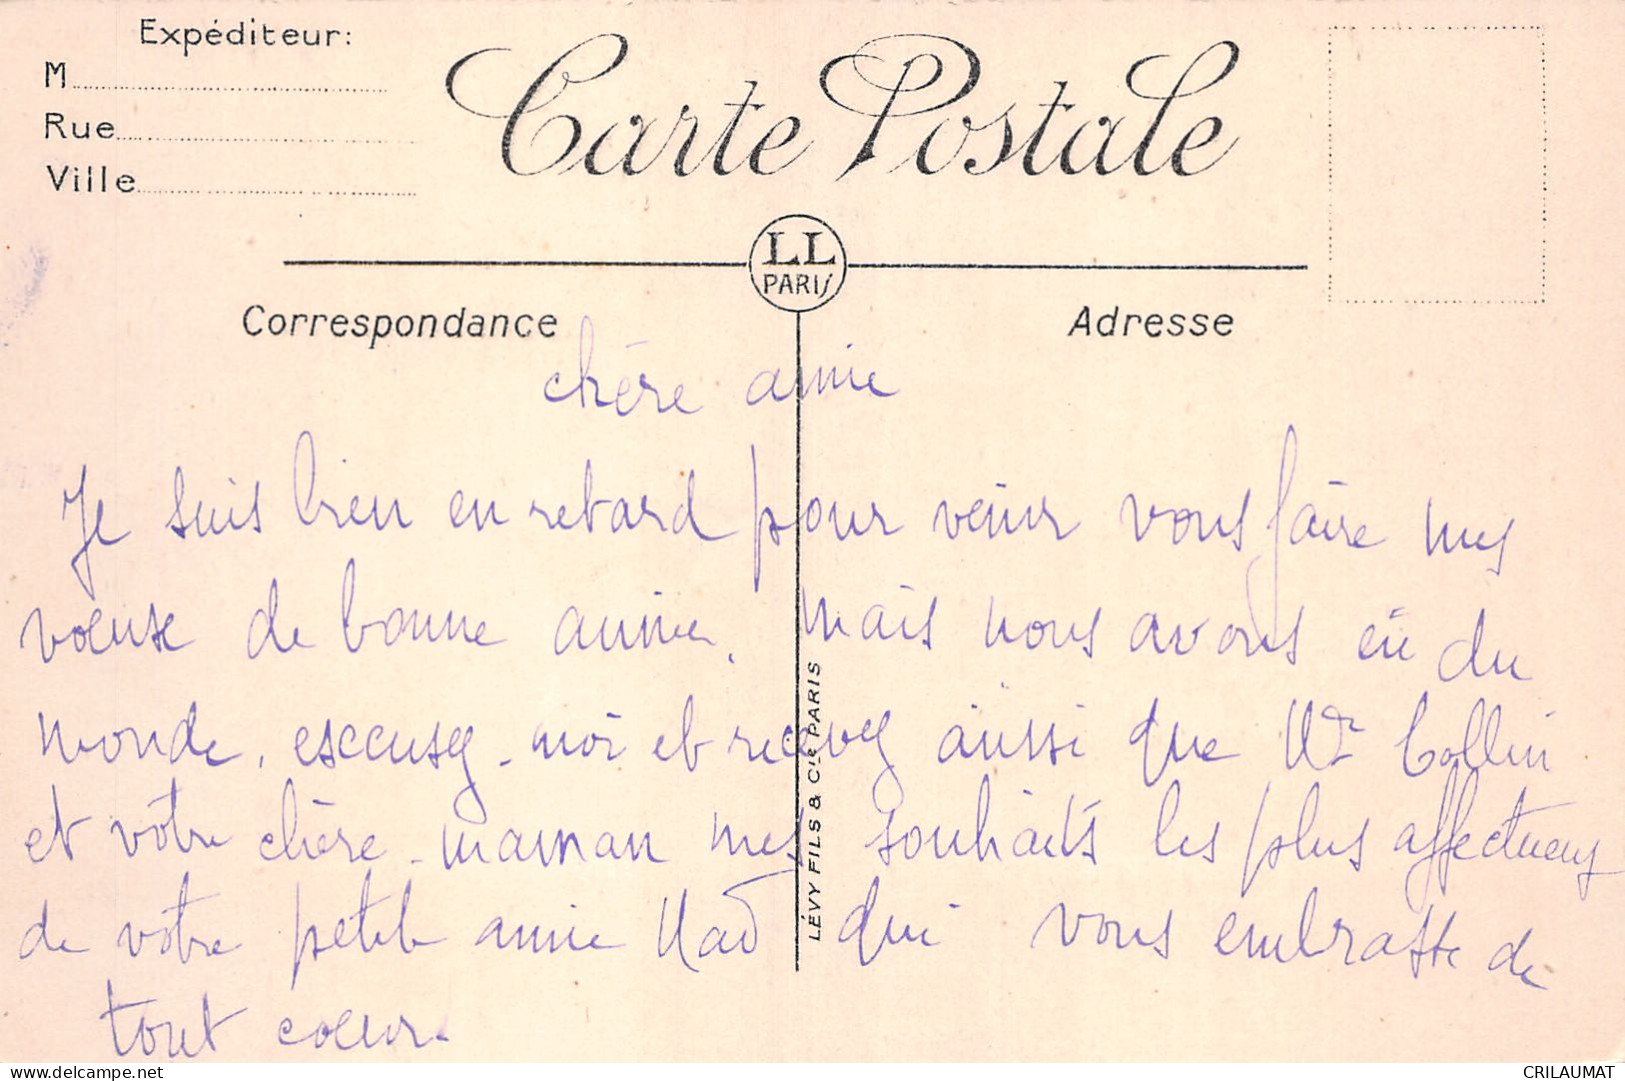 Expéditeur:
M
Rue
Ville
Carte Postale
LL
PARIS
Correspondance
Adresse
chère amie
Je suis bien en retard pour venir vous faire mes
voeuse de bonne année. Mais nous avons eü du
monde. esccusez-moi et recevez aüssi que Mr Collin
et vôtre chère maman mes souhaits les plus affectueux
de vôtre petite amie qui vous embrasse de
tout coeur.
LÉVY FILS & Cie PARIS
www.delcampe.net
CRILAUMAT